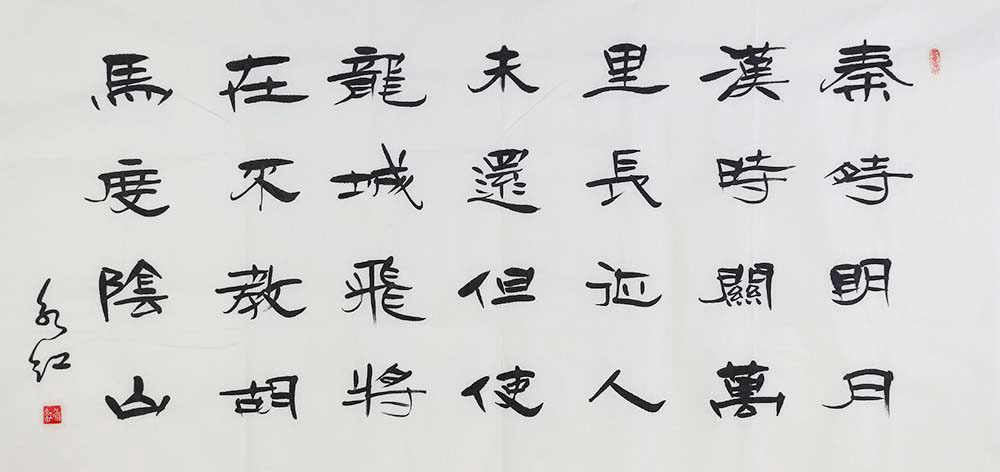 秦時明月
漢時關萬
里長征人
未還但使
龍城飛將
在不教胡
馬度陰山
永红